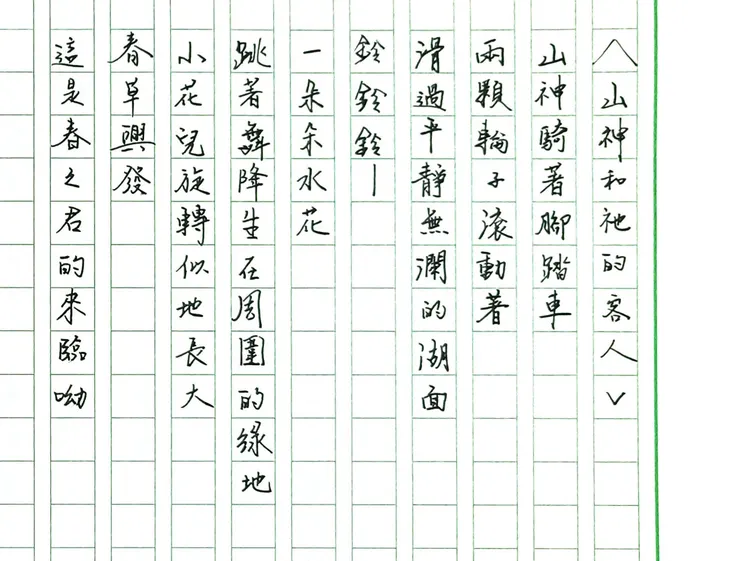 〈山神和祂的客人〉
山神騎著腳踏車
兩顆輪子滾動著
滑過平靜無瀾的湖面
鈴鈴鈴—
一朵朵水花
跳著舞降生在周圍的綠地
小花兒旋轉似地長大
春草興發
這是春之君的來臨呦